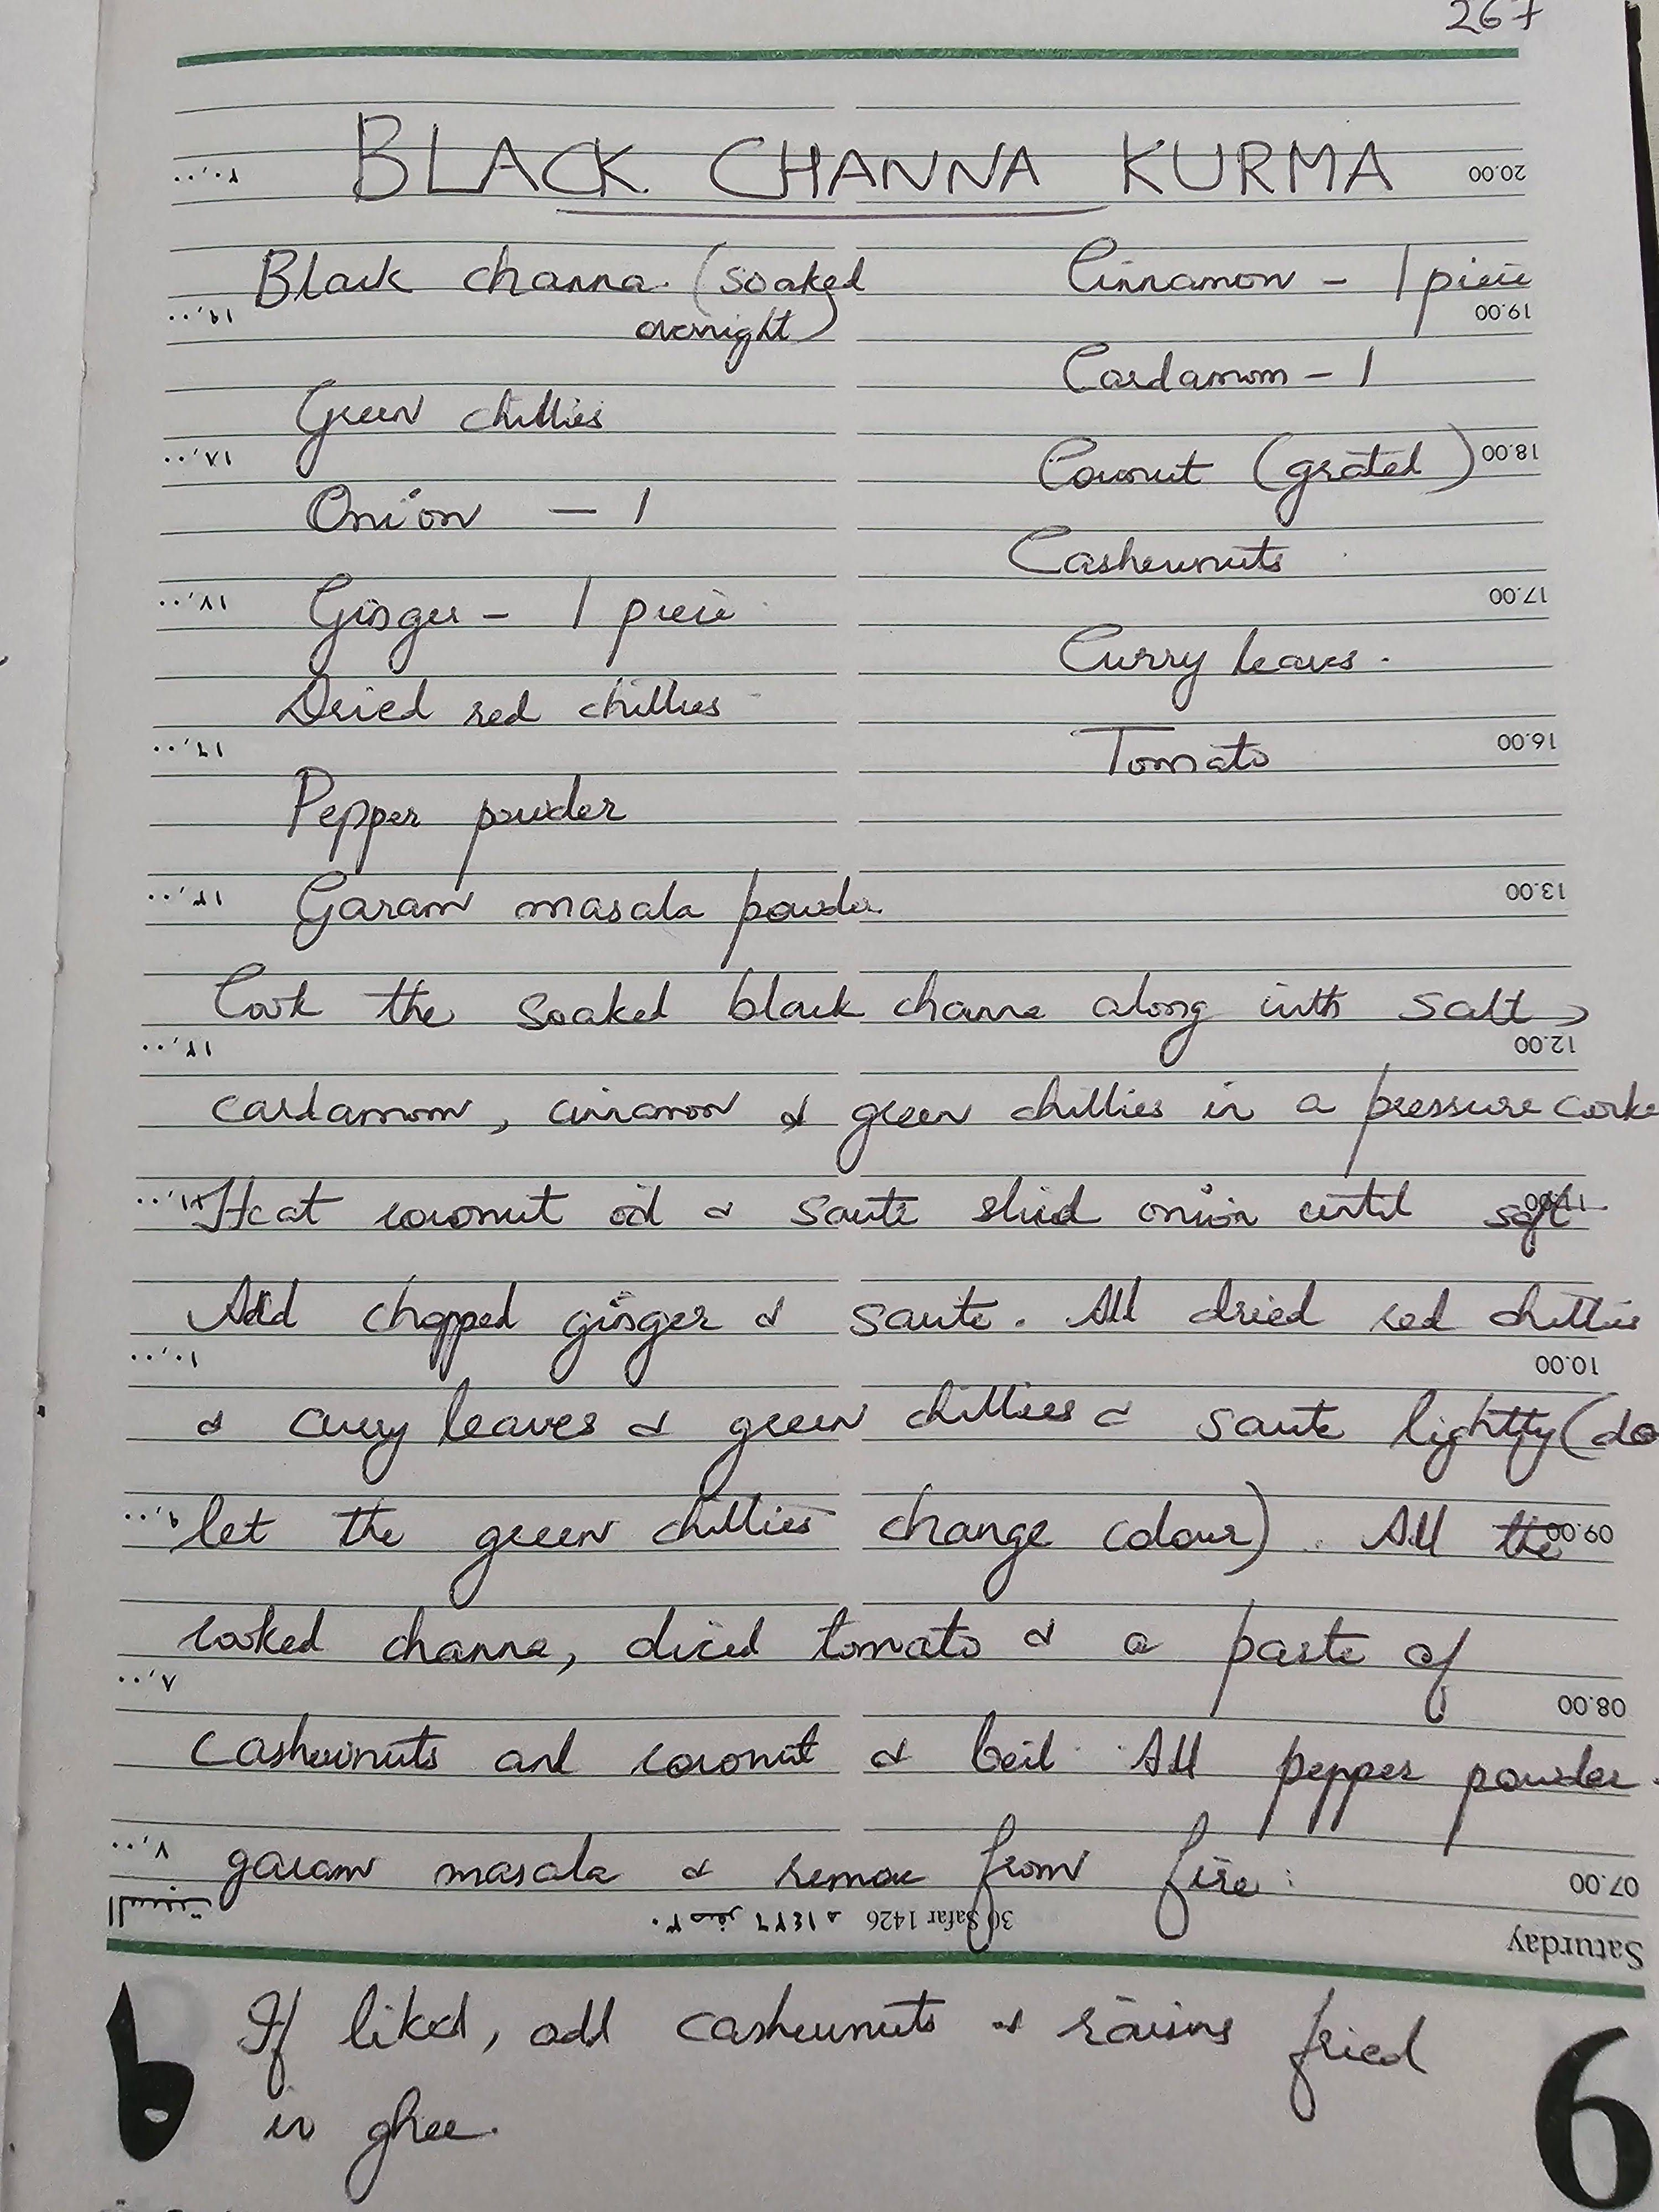 267
BLACK CHANNA KURMA
20.00
Black channa (soaked overnight)
Green chillies
Onion - 1
Ginger - 1 piece
Dried red chillies
Pepper powder
Garam masala powder
Cinnamon - 1 piece
19.00
Cardamom - 1
Coconut (grated)
18.00
Cashewnuts
17.00
Curry leaves.
Tomato
16.00
13.00
Cook the soaked black channa along with salt,
12.00
cardamom, cinnamon & green chillies in a pressure cooke
Heat coconut oil & saute sliced onion until soft
11.00
Add chopped ginger & saute. Add dried red chillies
10.00
& curry leaves & green chillies & saute lightly (do
let the green chillies change colour). Add the
09.00
cooked channa, diced tomato & a paste of
08.00
cashewnuts and coconut & boil. Add pepper powder.
garam masala & remove from fire.
07.00
30 Safar 1426 ٣٠ صفر ١٤٢٦ هـ
Saturday السبت
If liked, add cashewnuts & raisins fried
in ghee.
9